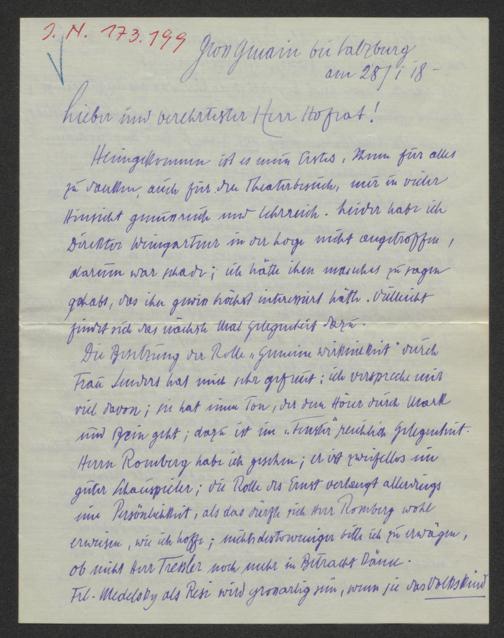 J. N. 173.199
Gross Gmain bei Salzburg
am 28/I 18 -
Lieber und verehrtester Herr Hofrat!
Heimgekommen ist es mein Erstes, Ihnen für alles
zu danken, auch für den Theaterbesuch, mir in vieler
Hinsicht genussreich und lehrreich. Leider habe ich
Direktor Weingartner in der Loge nicht angetroffen,
darum war schade; ich hätte ihm manches zu sagen
gehabt, das ihn gewiss höchst interessiert hätte. Vielleicht
findet sich das nächste Mal Gelegenheit dazu.
Die Besetzung der Rolle „Gemeine Wirklichkeit" durch
Frau Senders hat mich sehr gefreut; ich verspreche mir
viel davon; sie hat einen Ton, der dem Hörer durch Mark
und Bein geht; dazu ist im „Fenster" reichlich Gelegenheit.
Herrn Romberg habe ich gesehen; er ist zweifellos ein
guter Schauspieler; die Rolle des Ernst verlangt allerdings
eine Persönlichkeit, als das dürfte sich Herr Romberg wohl
erweisen, wie ich hoffe; nichtsdestoweniger bitte ich zu erwägen,
ob nicht Herr Tressler noch mehr in Betracht käme.
Frl. Medelsky als Resi wird grossartig sein, wenn sie das Volkskind